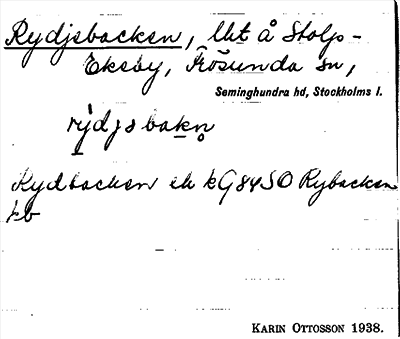 Rydjsbacken, lht å Stolp-
Eksby, Frösunda sn,
Seminghundra hd, Stockholms l.
rydjsbakn
Rydbacken ek kG84SO Rybacken
kb
KARIN OTTOSSON 1938.